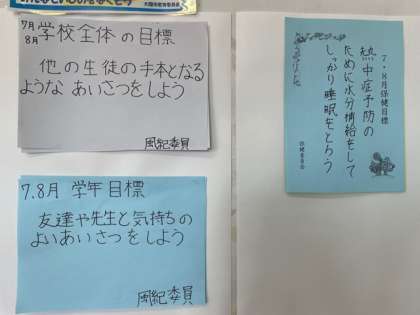 7月
8月 学校全体の目標
他の生徒の手本となる
ような あいさつをしよう
風紀委員
7.8月 学年目標
友達や先生と気持ちの
よいあいさつをしよう
風紀委員
7・8月保健目標
熱中症予防の
ために水分補給をして
しっかり睡眠をとろう
保健委員会